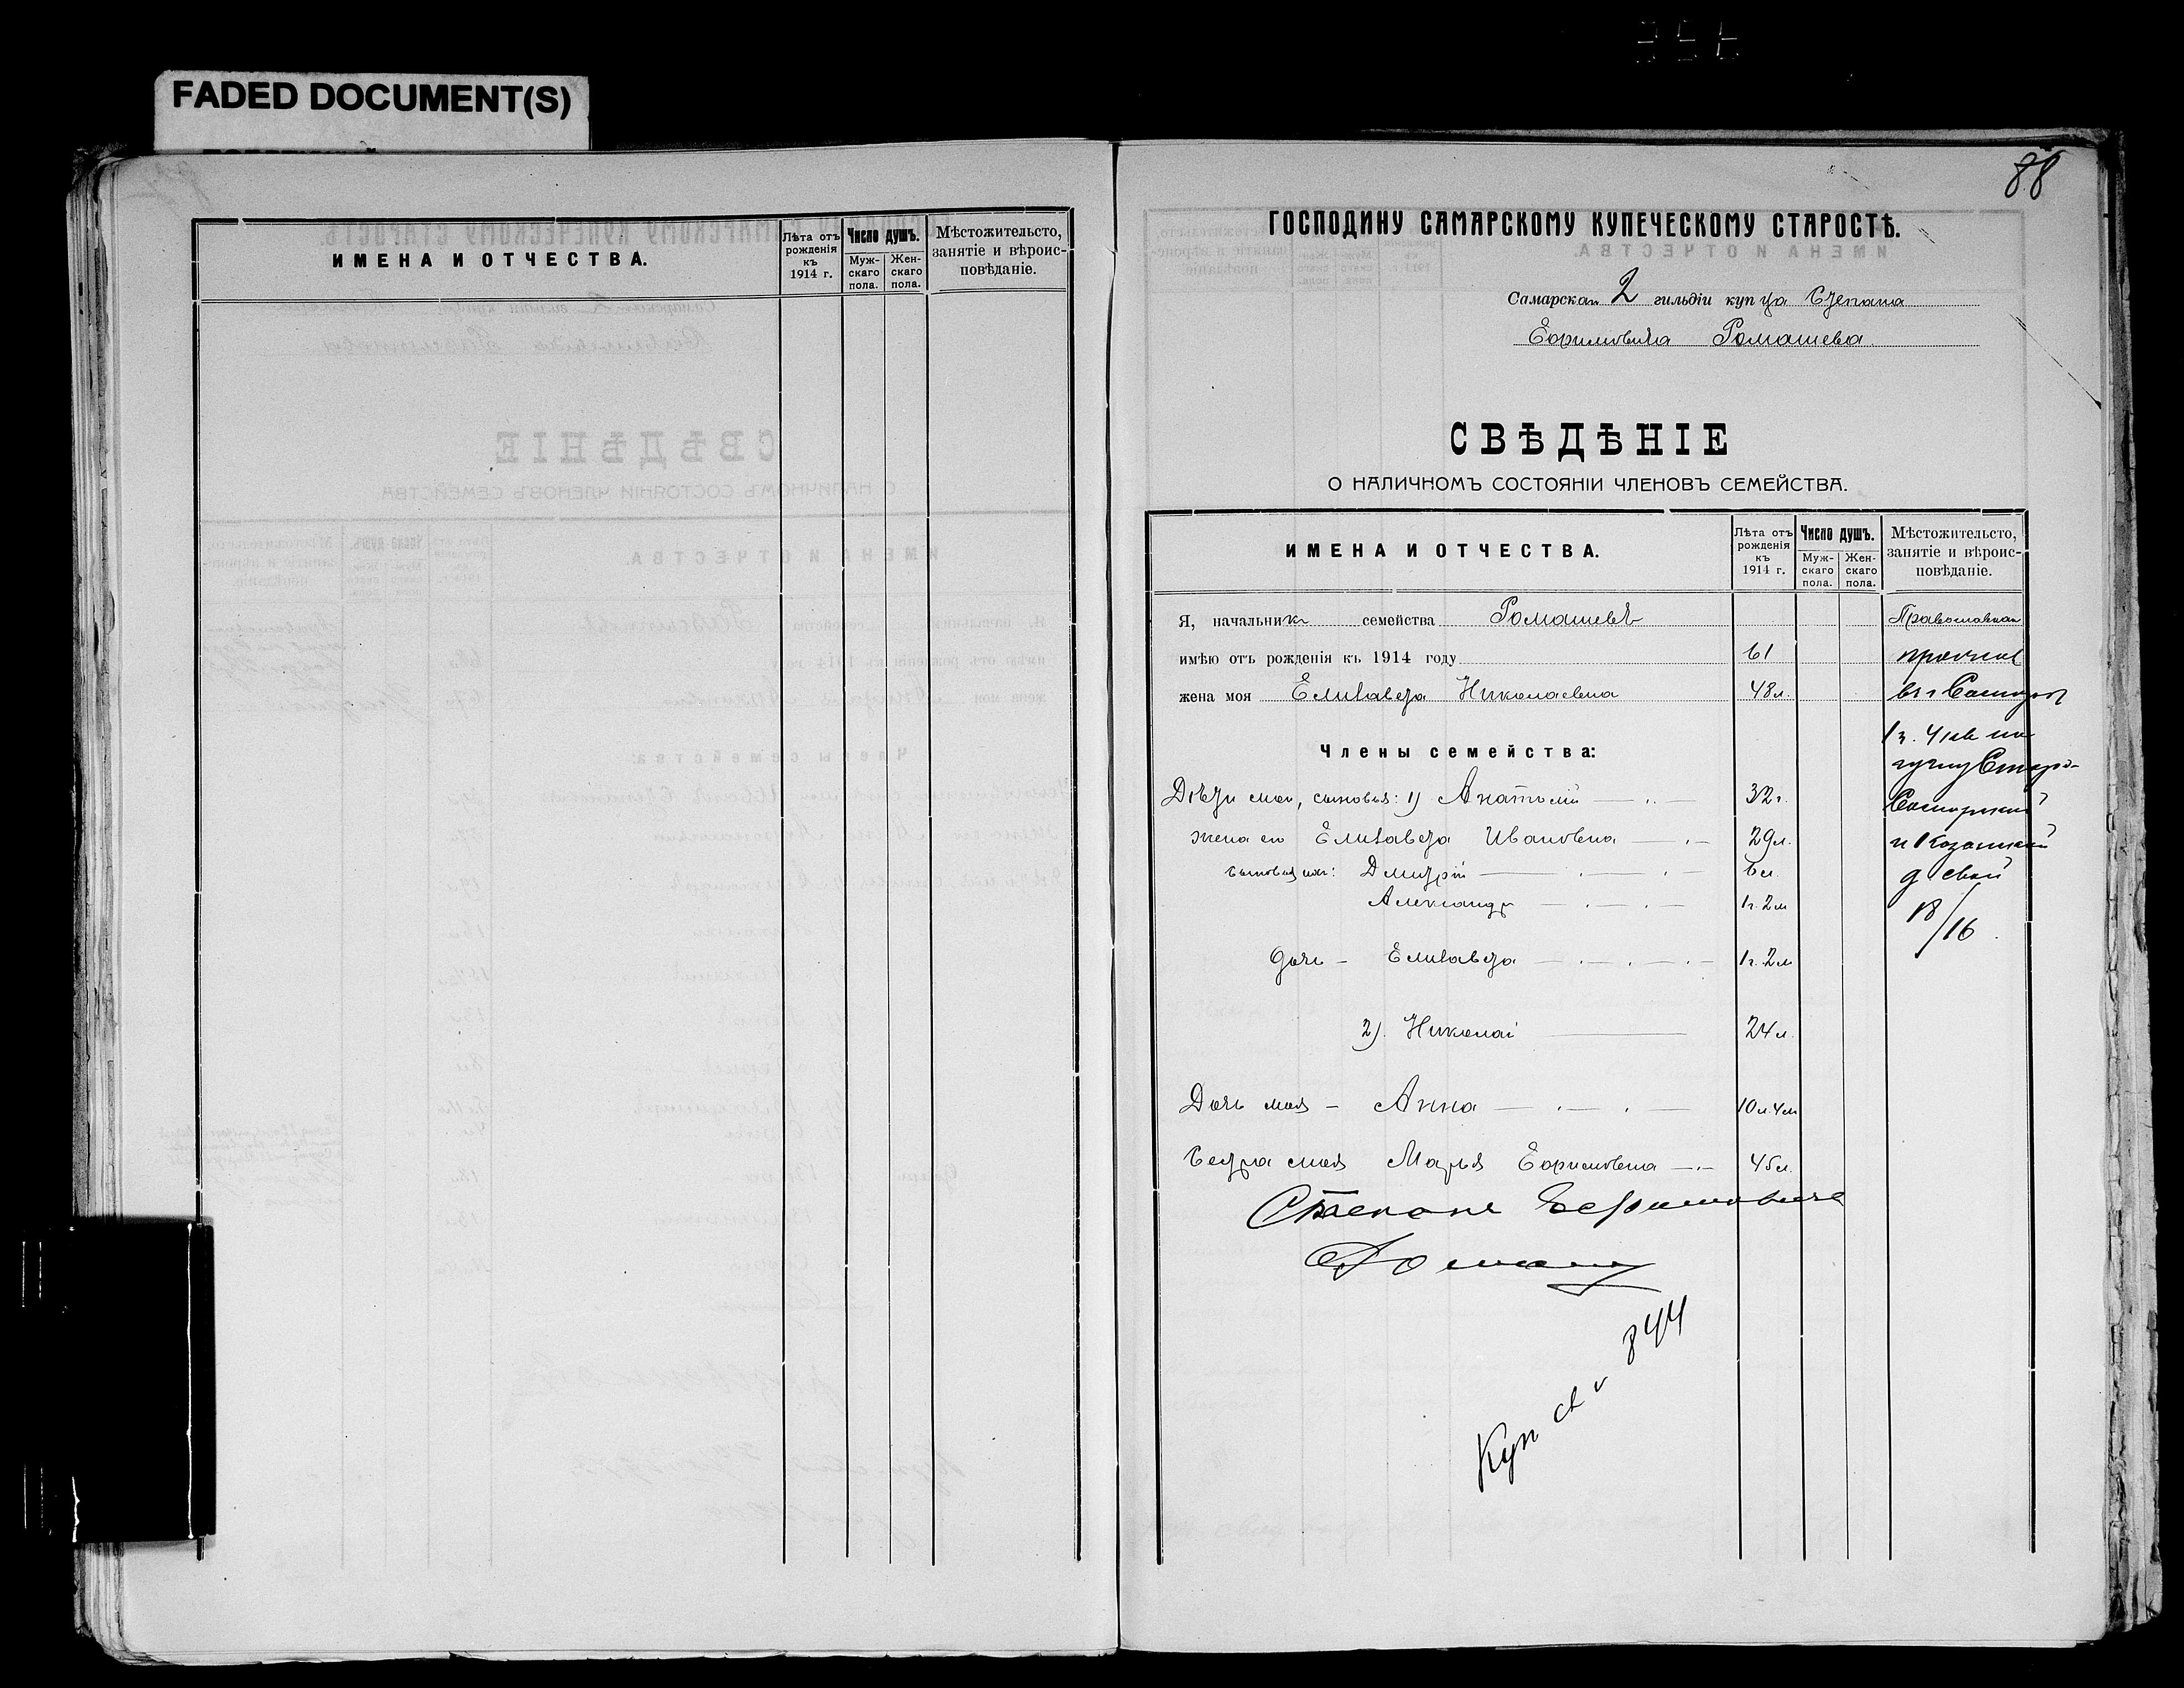 FADED DOCUMENT(S)
ИМЕНА И ОТЧЕСТВА.
Лѣта отъ рожденія къ 1914 г.
Число душъ.
Муж-скаго пола.
Жен-скаго пола.
Мѣстожительсто, занятіе и вѣроис-повѣданіе.
88
ГОСПОДИНУ САМАРСКОМУ КУПЕЧЕСКОМУ СТАРОСТѢ.
Самарска 2 гильдіи купца Степана
Ефимовича Ромашева
СВѢДѢНІЕ
О НАЛИЧНОМЪ СОСТОЯНІИ ЧЛЕНОВЪ СЕМЕЙСТВА.
ИМЕНА И ОТЧЕСТВА.
Лѣта отъ рожденія къ 1914 г.
Число душъ.
Муж-скаго пола.
Жен-скаго пола.
Мѣстожительсто, занятіе и вѣроис-повѣданіе.
Я, начальникъ семейства Ромашевъ Православная
имѣю отъ рожденія къ 1914 году 61
жена моя Елизавета Николаевна 48 л.
Члены семейства:
Дѣти мои, сыновья: 1) Анатолій 32 г.
жена его Елизавета Ивановна 29 л.
сыновья ихъ: Дмитрій 6 л.
Александр 1 г. 2 м
дочь - Елизавета 1 г. 2 м
2). Николай 24 л.
Дочь моя - Анна 10 л. 4 м
Сестра моя Марья Ефимовна 45 л.
въ г Самаре
углу Старо-
Самарской
и Казанской
д свой
18/16.
Степанъ Ефимовичъ
Куп св 844